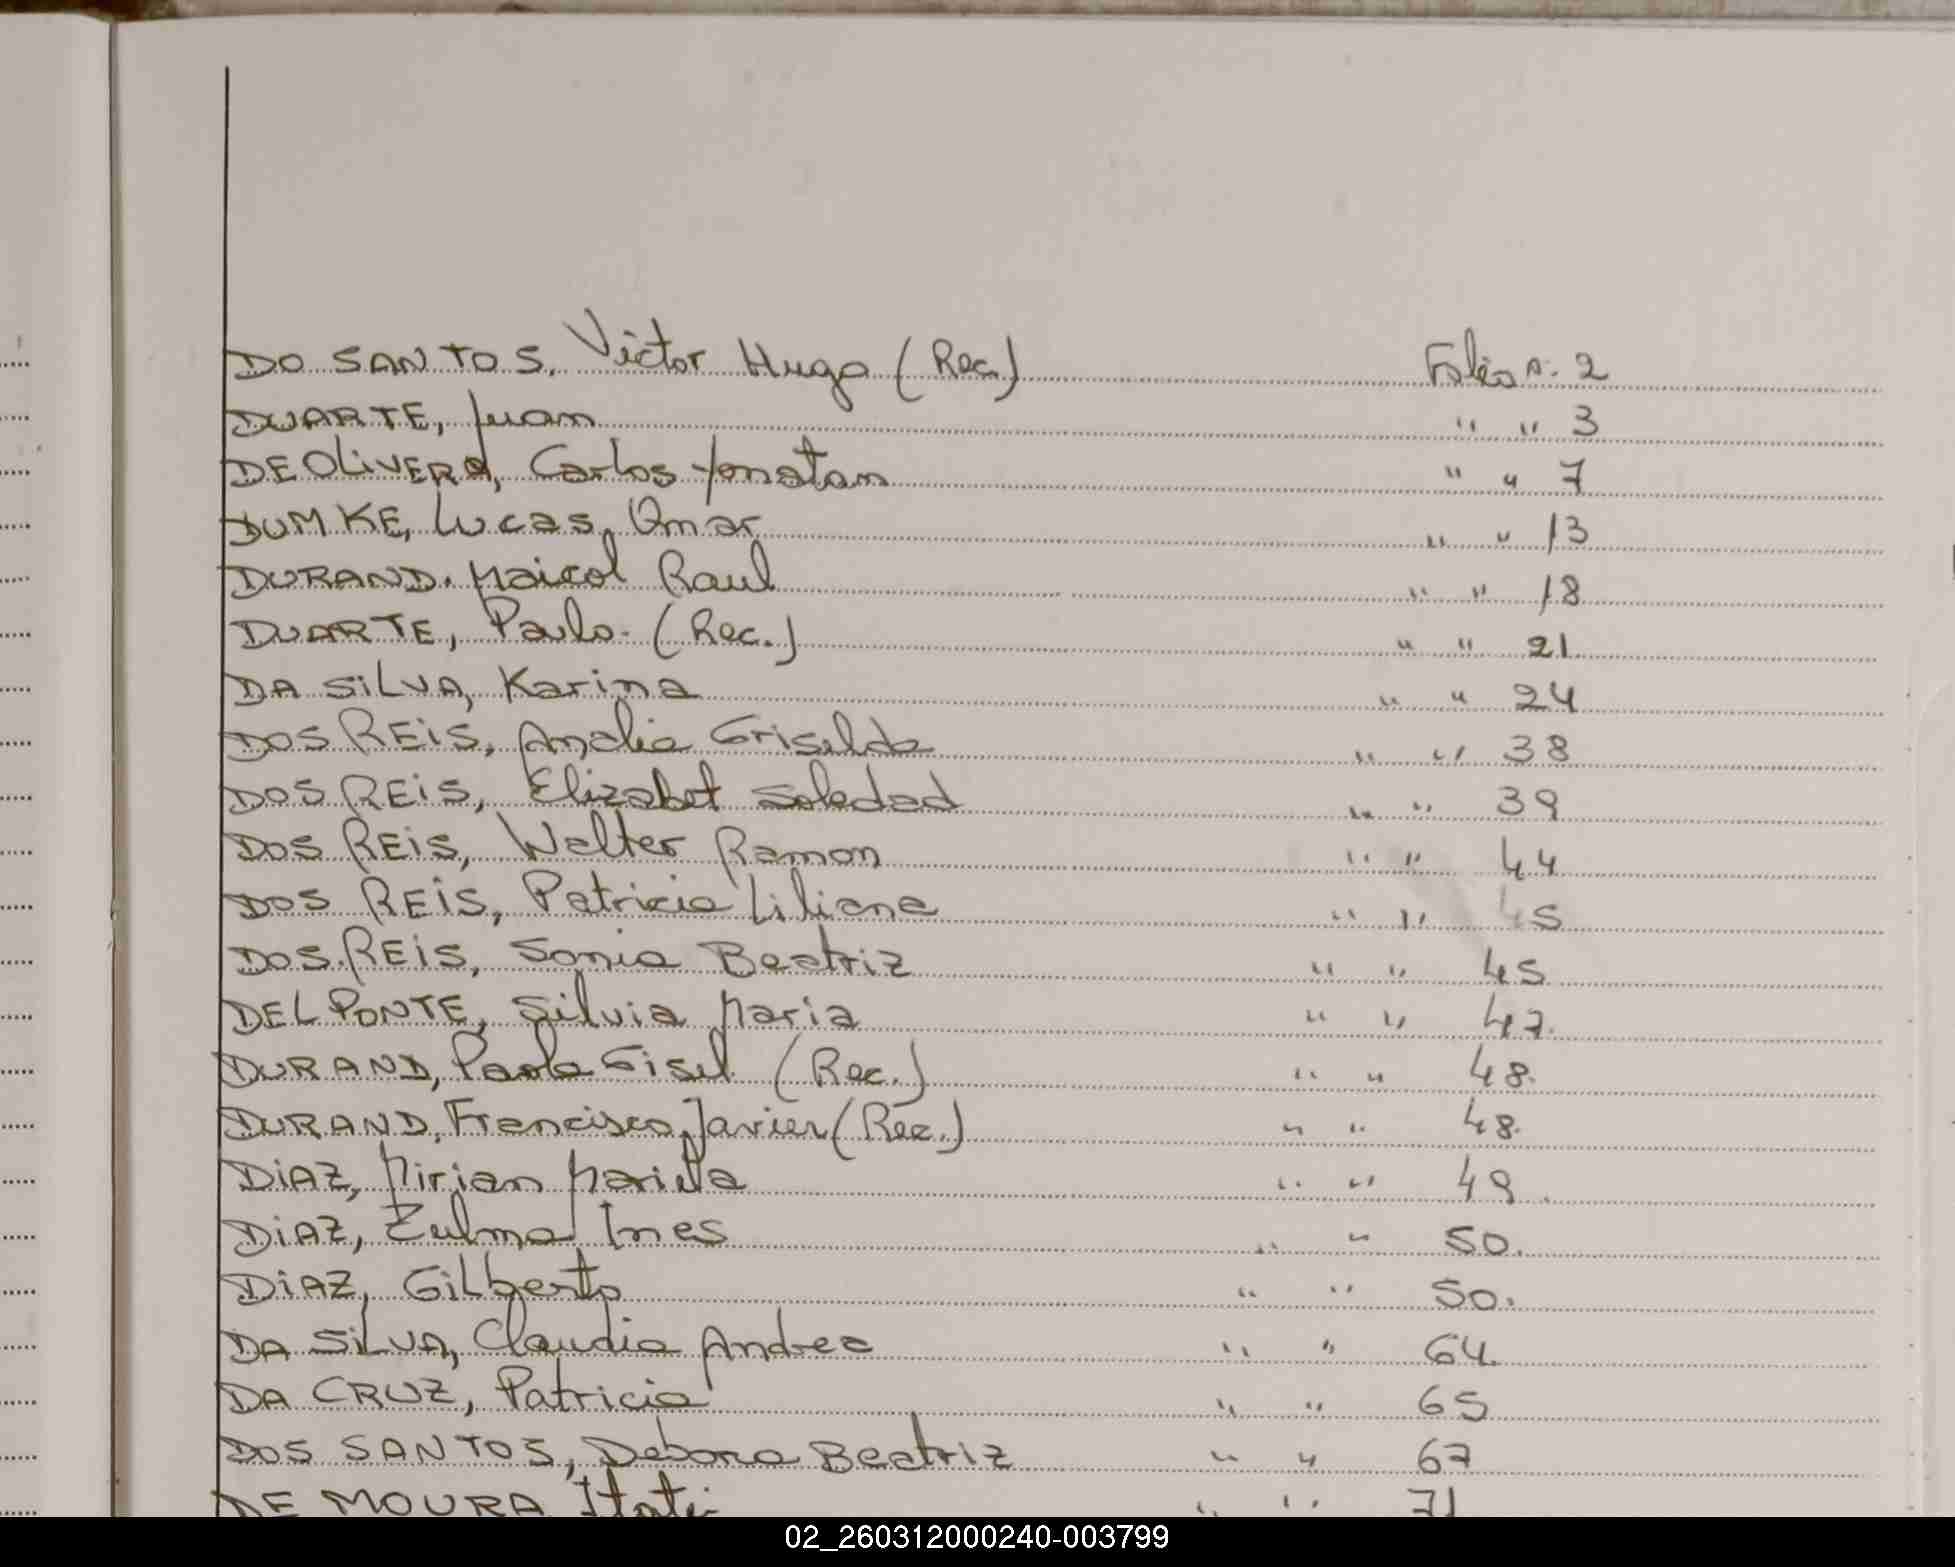 DO SANTOS, Victor Hugo (Rec.) Folio n: 2
DUARTE, Juan " " 3
DE OLIVERA, Carlos Yonatan " " 7
DUMKE, Lucas Omar " " 13
DURAND. Maicol Raul " " 18
DUARTE, Paulo. (Rec.) " " 21
DA SiLVA, Karina " " 24
DOS REiS, Analia Griselda " " 38
DOS REiS, Elizabet Soledad " " 39
DOS REiS, Walter Ramon " " 44
DOS REiS, Patricia Liliana " " 45
DOS REiS, Sonia Beatriz " " 45
DEL PONTE, Silvia Maria " " 47.
DURAND, Paola Gisel (Rec.) " " 48.
DURAND, Francisco Javier (Rec.) " " 48.
DiAZ, Mirian " " 49.
DiAZ, Zulma Ines " " 50.
DiAZ, Gilberto " " 50.
DA SiLVA, Claudia Andrea " " 64.
DA CRUZ, Patricia " " 65
DOS SANTOS, Debora Beatriz " " 67
DE MOURA, Itati " " 71
02_260312000240-003799